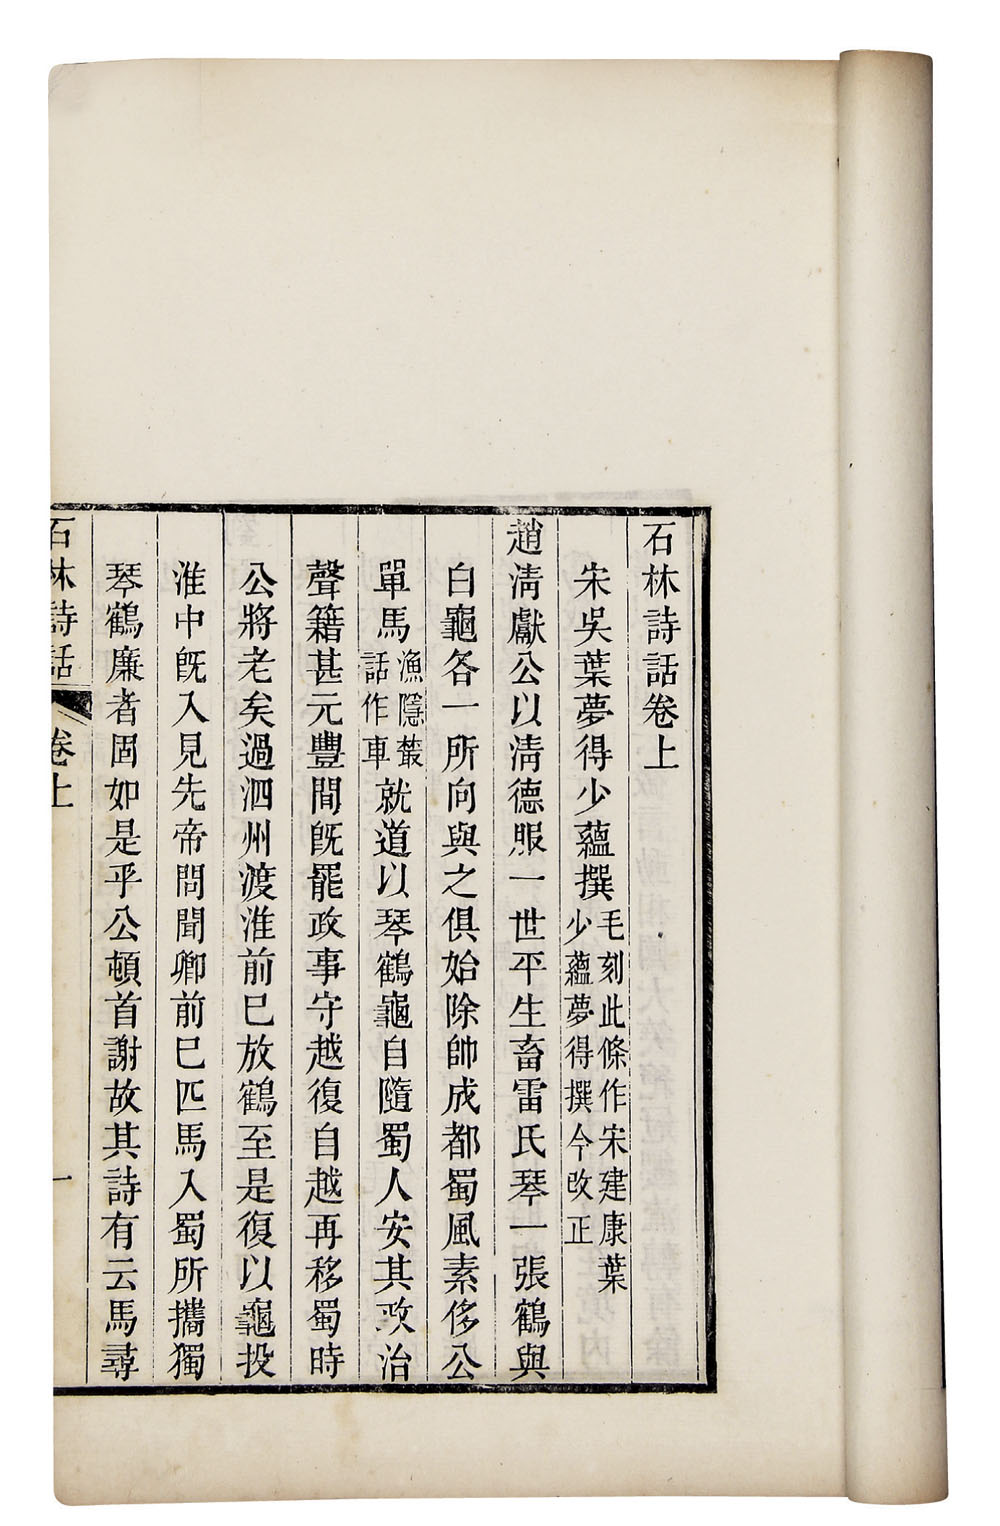 石林詩話卷上
宋吳葉夢得少蘊撰
毛刻此條作宋建康葉
少蘊夢得撰今改正
趙清獻公以清德服一世平生畜雷氏琴一張鶴與
白龜各一所向與之俱始除帥成都蜀風素侈公
單馬
漁隱叢
話作車
就道以琴鶴龜自隨蜀人安其政治
聲籍甚元豐間旣罷政事守越復自越再移蜀時
公將老矣過泗州渡淮前已放鶴至是復以龜投
淮中旣入見先帝問聞卿前已匹馬入蜀所攜獨
琴鶴廉者固如是乎公頓首謝故其詩有云馬尋
石林詩話
卷上
一